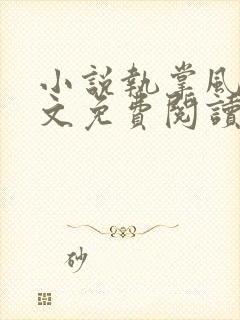 小説執掌風
文免費閱讀
砂